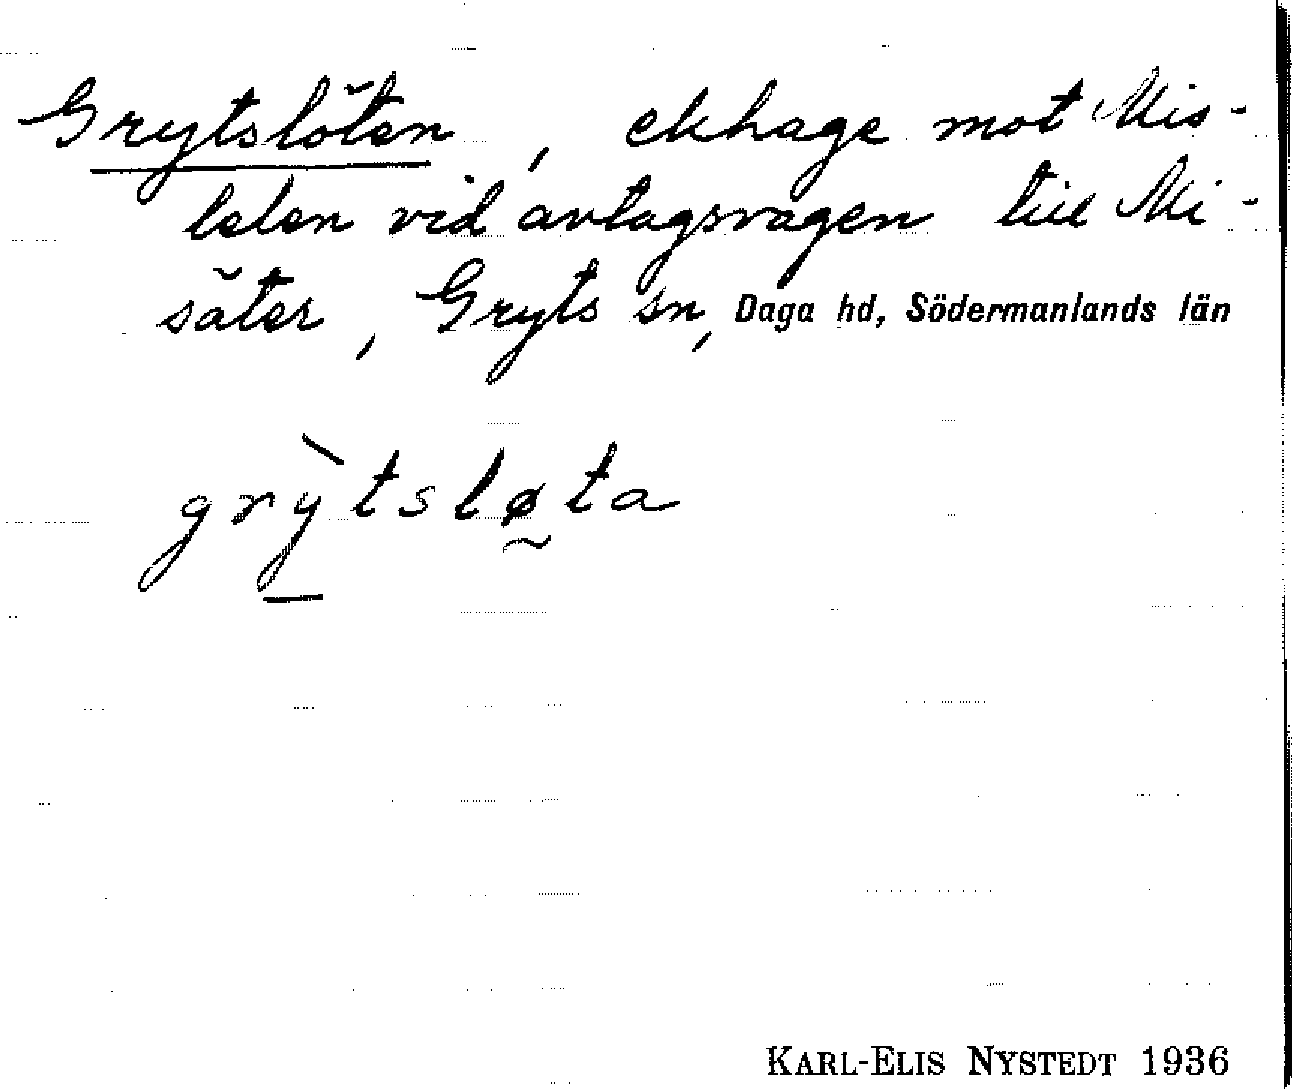 Grytslöten, ekhage mot Mis-
lelen vid avtagsvägen till Mi-
säter, Gryts sn, Daga hd, Södermanlands län
grỳtsløta
KARL-ELIS NYSTEDT 1936